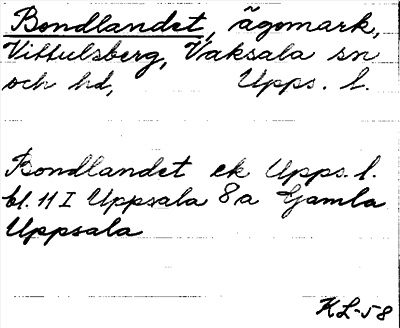 Bondlandet, ägomark,
Vittulsberg, Vaksala sn
och hd, Upps. l.
Bondlandet ek Upps. l.
bl. 11 I Uppsala 8a Gamla
Uppsala
KL-58